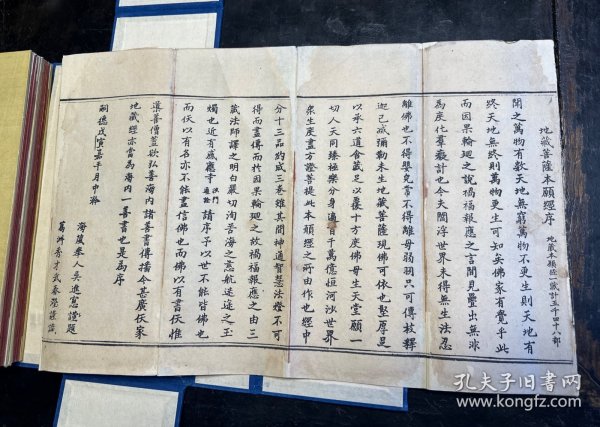 地藏菩薩本願經序
地藏本願經一藏計五千四十八部
聞之萬物有數天地無窮萬物不更生則天地有
終天地無終則萬物更生可知矣佛家有覺乎此
而因果輪廻之說禍福報應之言間見疊出無非
為度化羣癡計也今夫閻浮世界未得無生法忍
離佛也不得嬰兒寄不得離母弱羽只可傳枝釋
迦已滅彌勒未生地藏菩薩現佛可依也堅厚足
以承六道含藏足以覆十方度佛母生天堂願一
切人天同臻極樂分身遍百千萬億恒河沙世界
衆生度盡方證菩提此本願經之所由作也經中
分十三品約成三卷雖其間神通智慧法燈不可
得而盡傳而於因果輪廻之故禍福報應之由三
藏法師譯之明白嚴切洵苦海之慈航迷途之玉
燭也近有感應寺
請序予以世不能皆佛也
而伏以有名亦不能盡信佛也而佛以有書伏惟
慕善僧蓋欲弘善海内諸善書傳播今甚廣伏家
地藏經亦當為海内一善書也是為序
嗣德戊寅嘉平月中澣
海陵舉人吳進憲謹題
孔夫子旧书网
www.kongfz.com